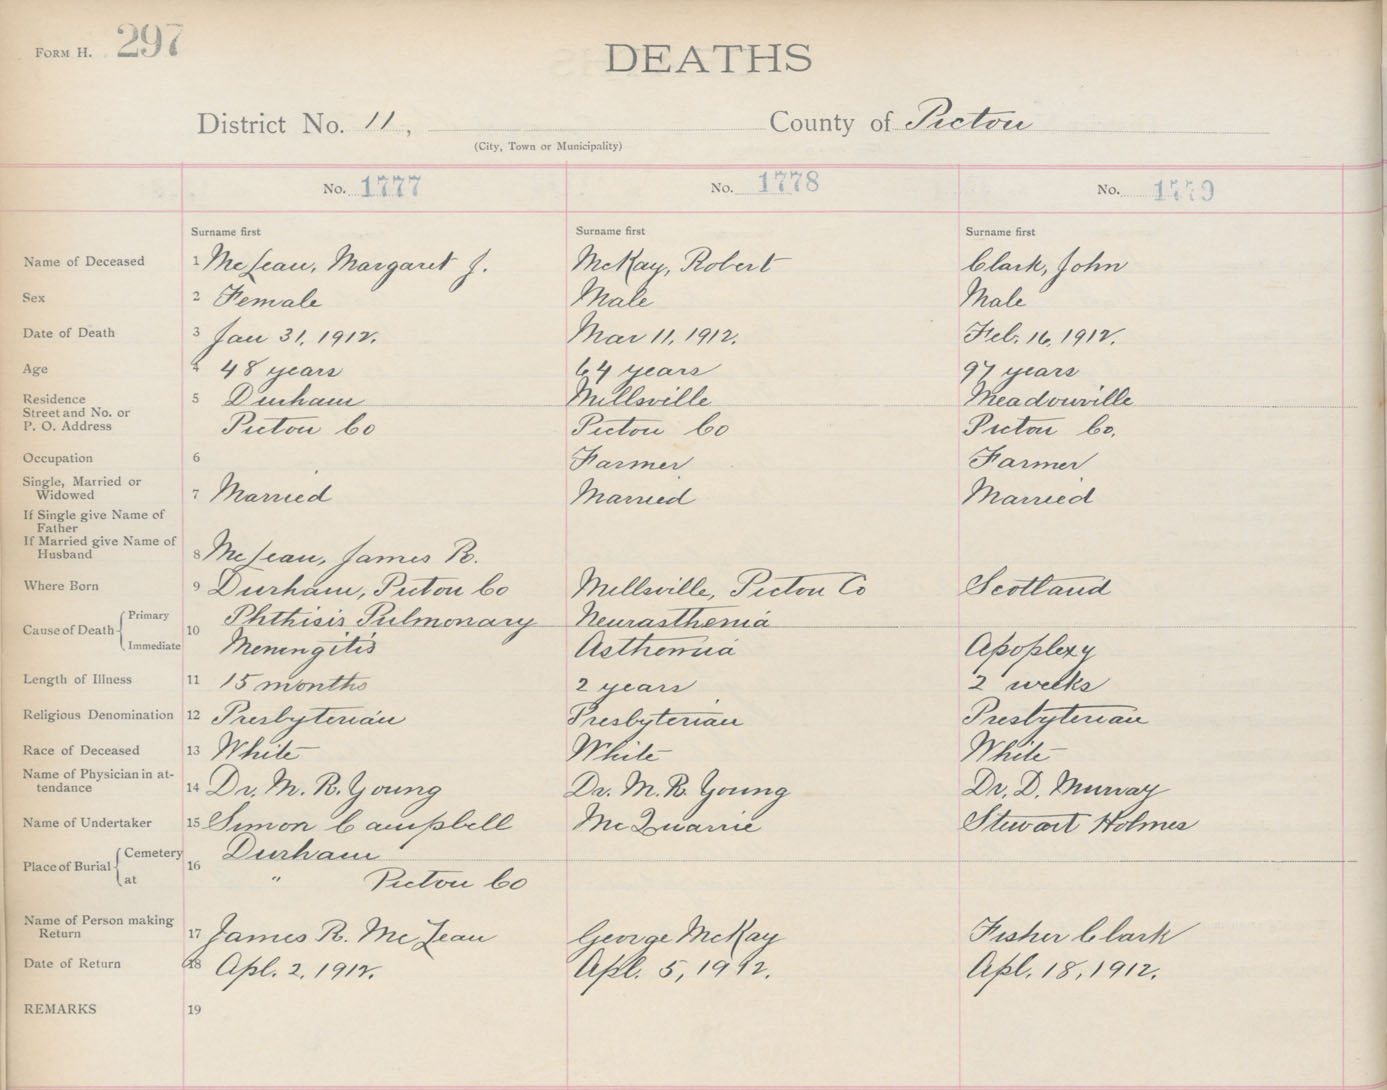 FORM H. 297
DEATHS
District No. 11, County of Pictou
(City, Town or Municipality)
No. 1777 No. 1778 No. 1779
Surname first Surname first Surname first
Name of Deceased 1 McLean, Margaret J. McKay, Robert Clark, John
Sex 2 Female Male Male
Date of Death 3 Jan 31, 1912. Mar 11, 1912. Feb. 16, 1912.
Age 4 48 years 64 years 97 years
Residence 5 Durham Millsville Meadowville
Street and No. or
P. O. Address Pictou Co Pictou Co Pictou Co.
Occupation 6 Farmer Farmer
Single, Married or
Widowed 7 Married Married Married
If Single give Name of
Father
If Married give Name of
Husband 8 McLean, James R.
Where Born 9 Durham, Pictou Co Millsville, Pictou Co Scotland
Primary Phthisis Pulmonary Neurasthenia
Cause of Death 10
Immediate Meningitis Asthemia Apoplexy
Length of Illness 11 15 months 2 years 2 weeks
Religious Denomination 12 Presbyterian Presbyterian Presbyterian
Race of Deceased 13 White White White
Name of Physician in at-
tendance 14 Dr. M. R. Young Dr. M. R. Young Dr. D. Murray
Name of Undertaker 15 Simon Campbell McQuarrie Stewart Holmes
Cemetery Durham
Place of Burial 16
at " Pictou Co
Name of Person making
Return 17 James R. McLean George McKay Fisher Clark
Date of Return 18 Apl. 2, 1912. Apl. 5, 1912. Apl. 18, 1912.
REMARKS 19